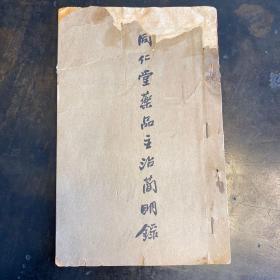 同仁堂藥品主治简明錄